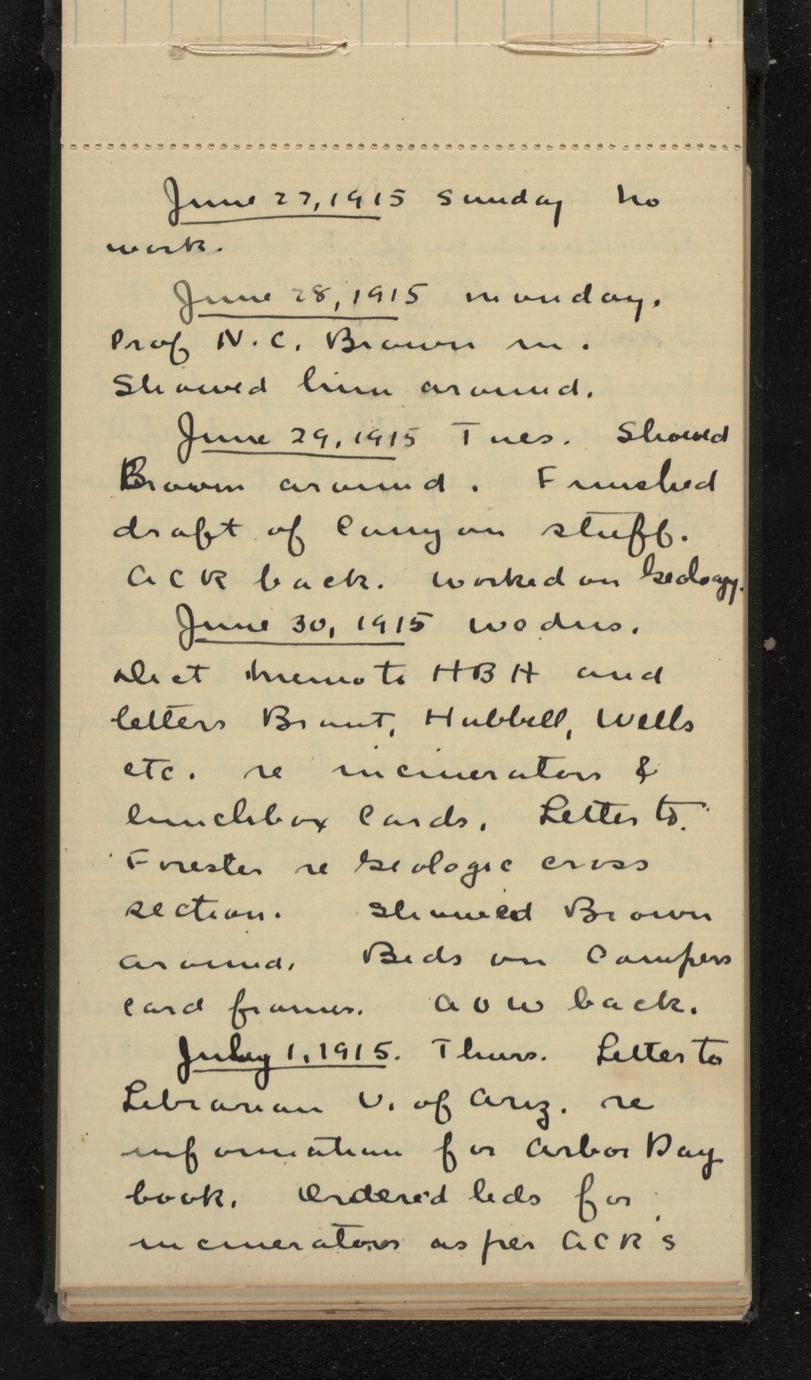 June 27, 1915 Sunday No
work.
June 28, 1915 Monday.
Prof N. C. Brown in.
Showed him around.
June 29, 1915 Tues. Showed
Brown around. Finished
draft of Canyon stuff.
ACR back. Worked on Geology.
June 30, 1915 Wednes.
Dict memo to HBH and
letters Brant, Hubbell, Wells
etc. re incinerators &
lunchbox cards. Letter to
Forester re Geologic cross
section. Showed Brown
around. Bids on Campers
card frames. AOW back.
July 1, 1915. Thurs. Letter to
Librarian U. of Ariz. re
information for Arbor Day
book. Ordered lids for
incinerators as per ACR's